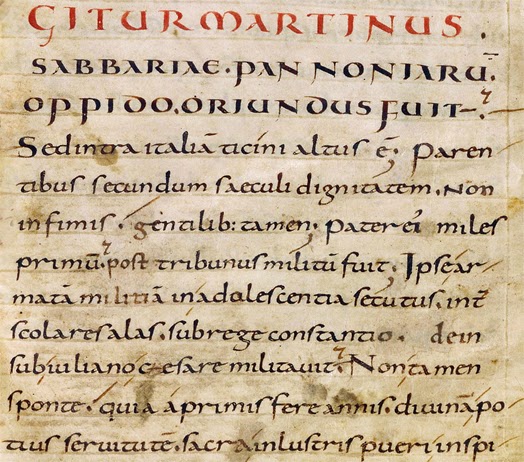 GITUR MARTINUS.
SABBARIAE. PANNONIARŪ.
OPPIDO. ORIUNDUS FUIT.
Sed intra italiā ticini altus ē; Paren
tibus secundum saeculi dignitatem. Non
infimis. gentilib: tamen; Pater ei miles
primū. post tribunus militū fuit; Ipse ar
matā militiā in adolescentia secutus. int̄
scolares alas. sub rege constantio. dein
sub iuliano caesare militauit. Non tamen
sponte. quia a primis fere annis. diuinā po
tius seruitutē. sacra inlustris pueri inspi